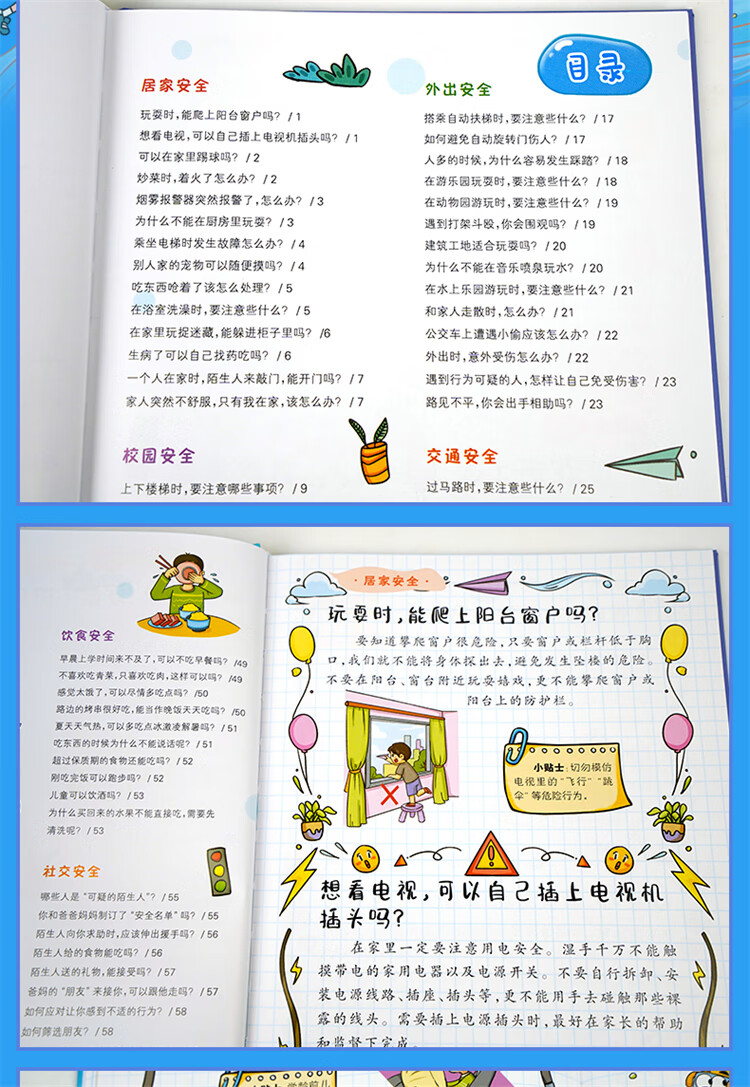 目录
居家安全
玩耍时,能爬上阳台窗户吗? / 1
想看电视,可以自己插上电视机插头吗? / 1
可以在家里踢球吗? / 2
炒菜时,着火了怎么办? / 2
烟雾报警器突然报警了,怎么办? / 3
为什么不能在厨房里玩耍? / 3
乘坐电梯时发生故障怎么办? / 4
别人家的宠物可以随便摸吗? / 4
吃东西呛着了该怎么处理? / 5
在浴室洗澡时,要注意些什么? / 5
在家里玩捉迷藏,能躲进柜子里吗? /6
生病了可以自己找药吃吗? / 6
一个人在家时,陌生人来敲门,能开门吗? / 7
家人突然不舒服,只有我在家,该怎么办? / 7
校园安全
上下楼梯时,要注意哪些事项? / 9
外出安全
搭乘自动扶梯时,要注意些什么? / 17
如何避免自动旋转门伤人? / 17
人多的时候,为什么容易发生踩踏? / 18
在游乐园玩耍时,要注意些什么? / 18
在动物园游玩时,要注意些什么? / 19
遇到打架斗殴,你会围观吗? / 19
建筑工地适合玩耍吗? / 20
为什么不能在音乐喷泉玩水? / 20
在水上乐园游玩时,要注意些什么? / 21
和家人走散时,怎么办? / 21
公交车上遭遇小偷应该怎么办? / 22
外出时,意外受伤怎么办? / 22
遇到行为可疑的人,怎样让自己免受伤害? / 23
路见不平,你会出手相助吗? / 23
交通安全
过马路时,要注意些什么? / 25
饮食安全
早晨上学时间来不及了,可以不吃早餐吗? /49
不喜欢吃青菜,只喜欢吃肉,这样可以吗? /49
感觉太饿了,可以尽情多吃点吗? /50
路边的烤串很好吃,能当作晚饭天天吃吗? /50
夏天天气热,可以多吃点冰激凌解暑吗? / 51
吃东西的时候为什么不能说话呢? / 51
超过保质期的食物还能吃吗? / 52
刚吃完饭可以跑步吗? / 52
儿童可以饮酒吗? / 53
为什么买回来的水果不能直接吃,需要先
清洗呢? / 53
社交安全
哪些人是“可疑的陌生人”? / 55
你和爸爸妈妈制订了“安全名单”吗? / 55
陌生人向你求助时,应该伸出援手吗? / 56
陌生人给的食物能吃吗? / 56
陌生人送的礼物,能接受吗? / 57
爸妈的“朋友”来接你,可以跟他走吗? / 57
如何应对让你感到不适的行为? / 58
如何筛选朋友? / 58
·居家安全·
玩耍时,能爬上阳台窗户吗?
要知道攀爬窗户很危险,只要窗户或栏杆低于胸
口,我们就不能将身体探出去,避免发生坠楼的危险。
不要在阳台、窗台附近玩耍嬉戏,更不能攀爬窗户或
阳台上的防护栏。
小贴士:切勿模仿
电视里的“飞行”“跳
伞”等危险行为。
想看电视,可以自己插上电视机
插头吗?
在家里一定要注意用电安全。湿手千万不能触
摸带电的家用电器以及电源开关。不要自行拆卸、安
装电源线路、插座、插头等,更不能用手去碰触那些裸
露的线头。需要插上电源插头时,最好在家长的帮助
和监督下完成。